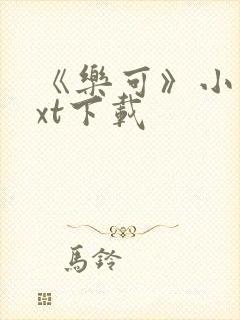 《樂可》小
xt下載
馬鈴